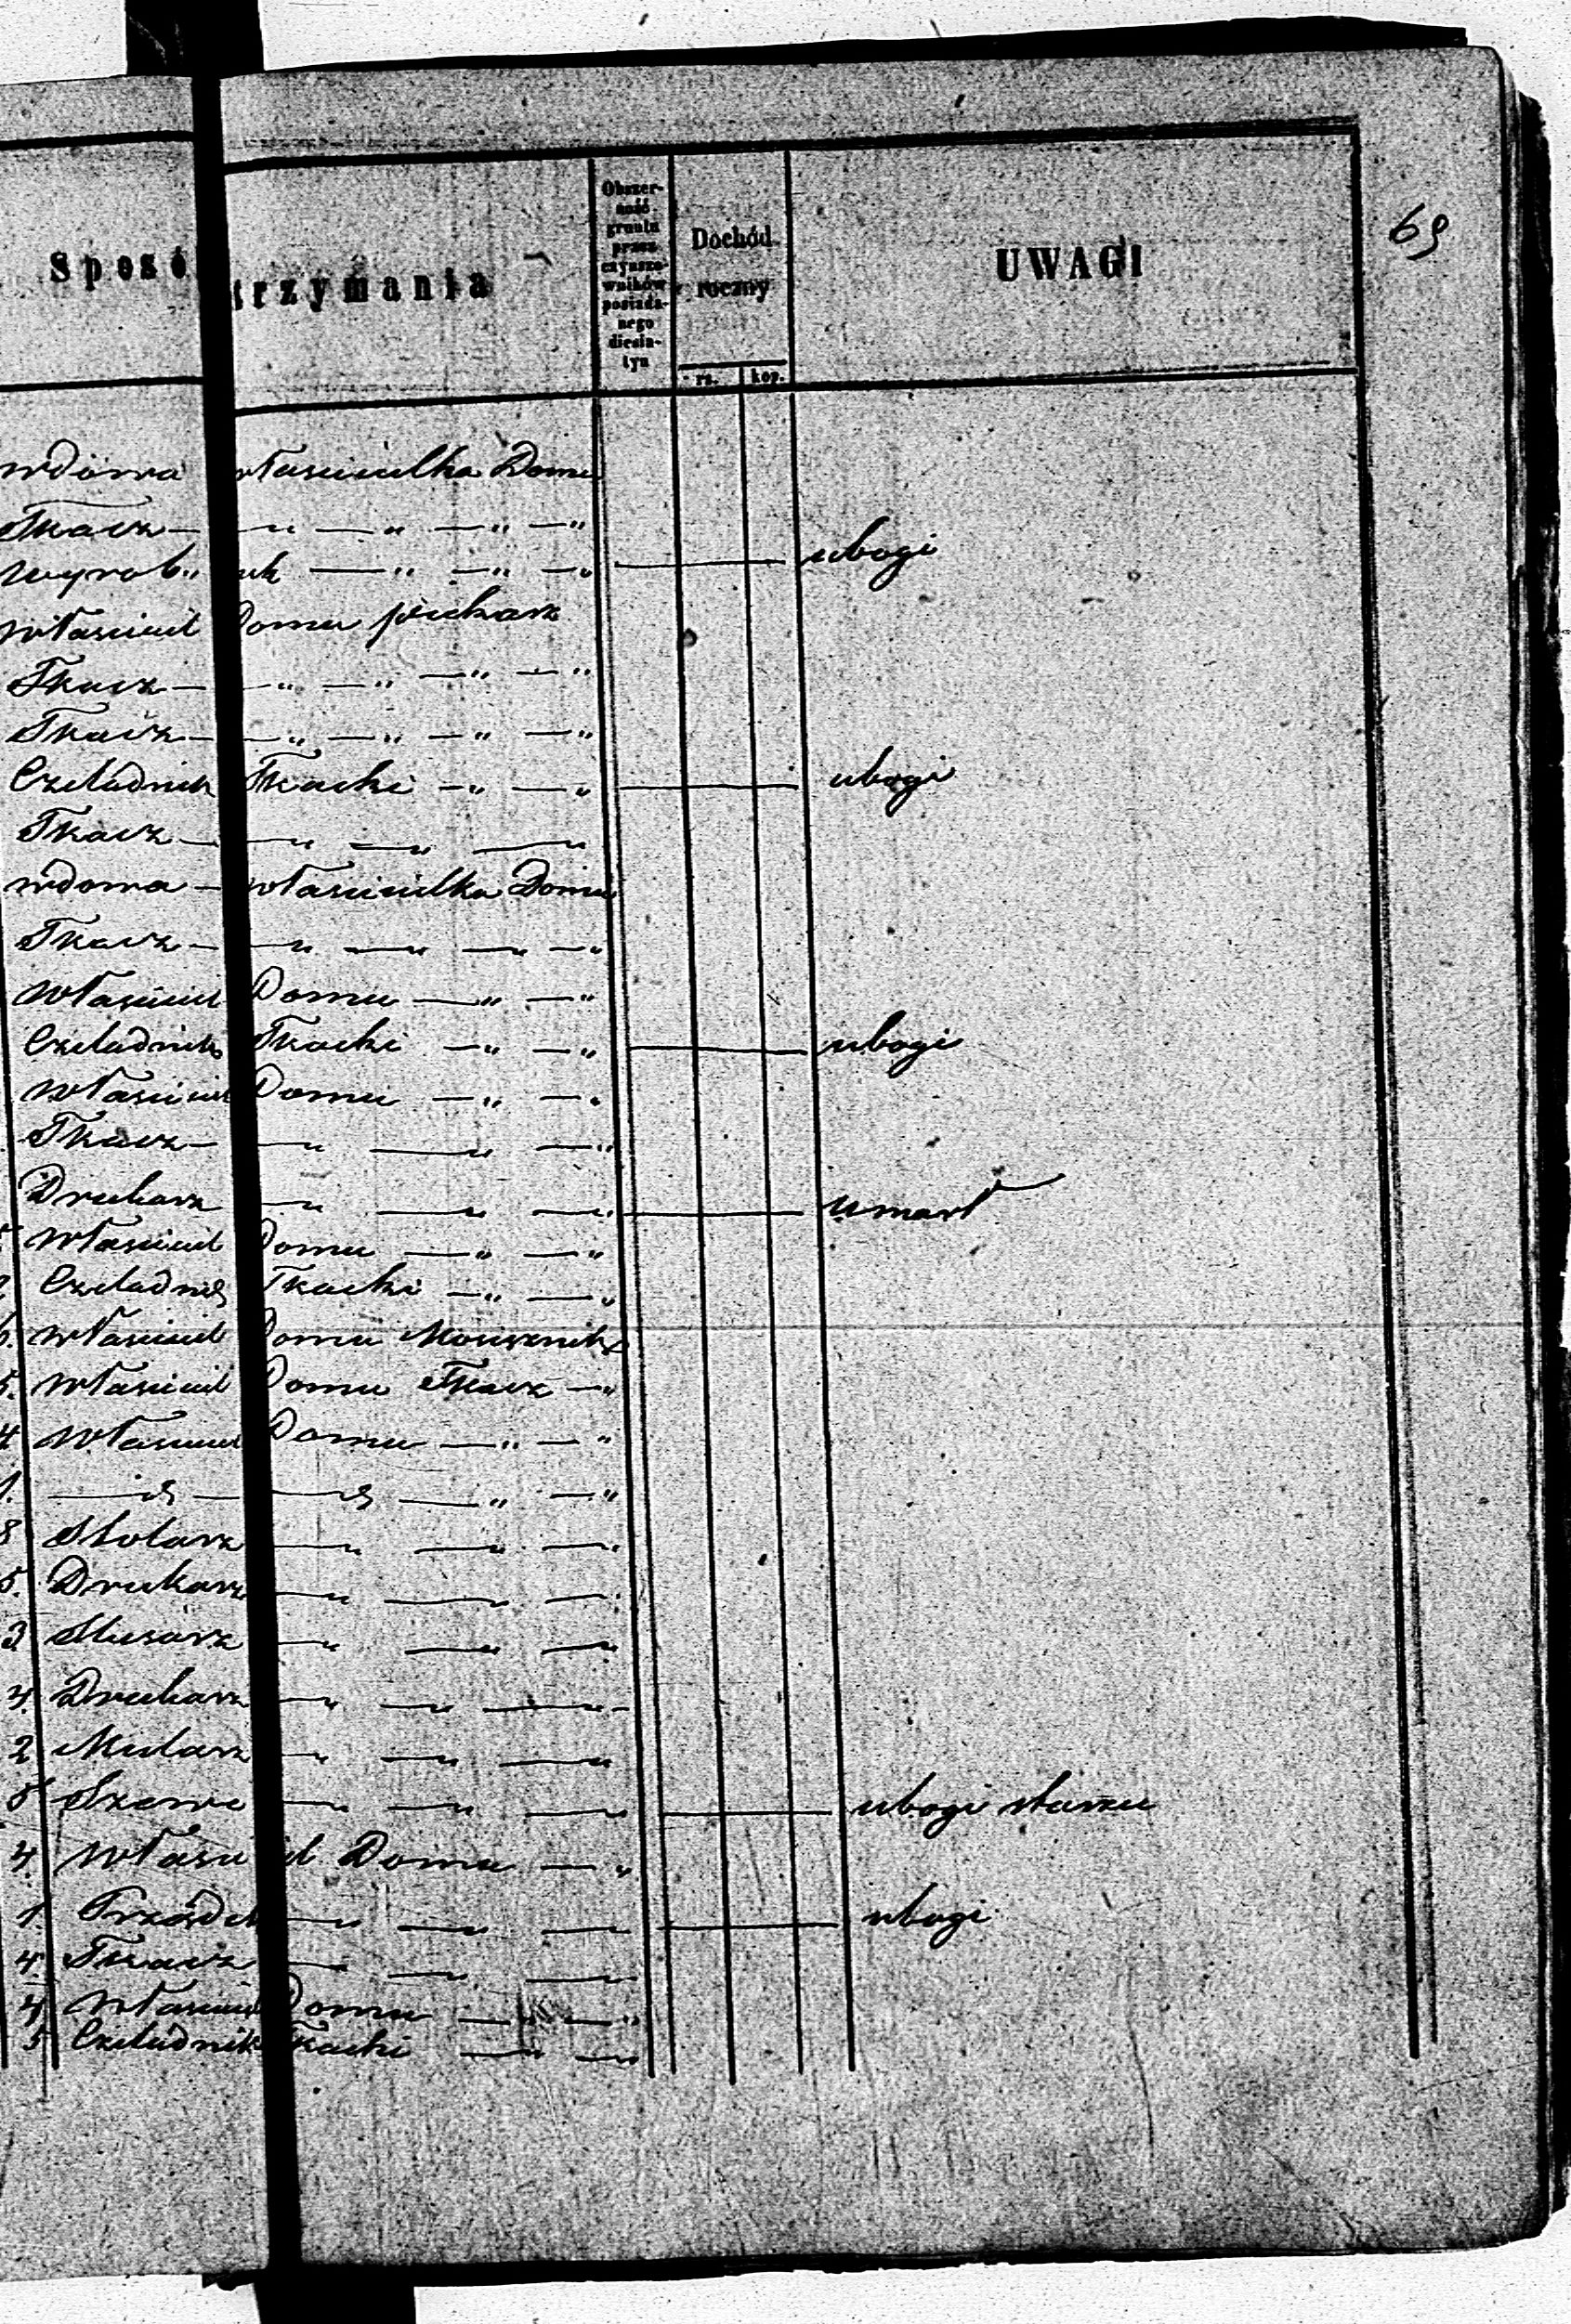 69
Sposó trzymania
Obszer-
ność
gruntu
przez
czynszo-
wników
posiada-
nego
diesia-
tyn
Dochód
roczny
rs. kop.
UWAGI
wdowa właścicielka Domu
Tkacz — " — " — " — "
wyrob" nik — " — " — " ubogi
właściciel Domu piekarz
Tkacz — " — " — " — "
Tkacz — " — " — " — "
Czeladnik Tkacki — " — " ubogi
Tkacz — " — " — "
wdowa — właścicielka Domu
Tkacz — " — " — " — "
właściciel Domu — " — "
Czeladnik Tkacki — " — " ubogi
właściciel Domu — " — "
Tkacz — " — " — "
Drukarz — " — " — " umarł
właściciel Domu — " — "
Czeladnik Tkacki — " — "
6. właściciel Domu
5. właściciel Domu Tkacz — "
4 właściciel Domu — " — "
1. — " — "
8 Stolarz — " — " — "
5. Drukarz — " — " — "
3 Slusarz — " — " — "
4. Drukarz — " — " — "
2 Mularz — " — " — "
5 Szewc — " — " — " ubogi starzec
4 właściciel Domu — "
1. — " — " — " ubogi
4 Tkacz — " — " — "
4 właściciel Domu — " — "
5 Czeladnik Tkacki — " — "